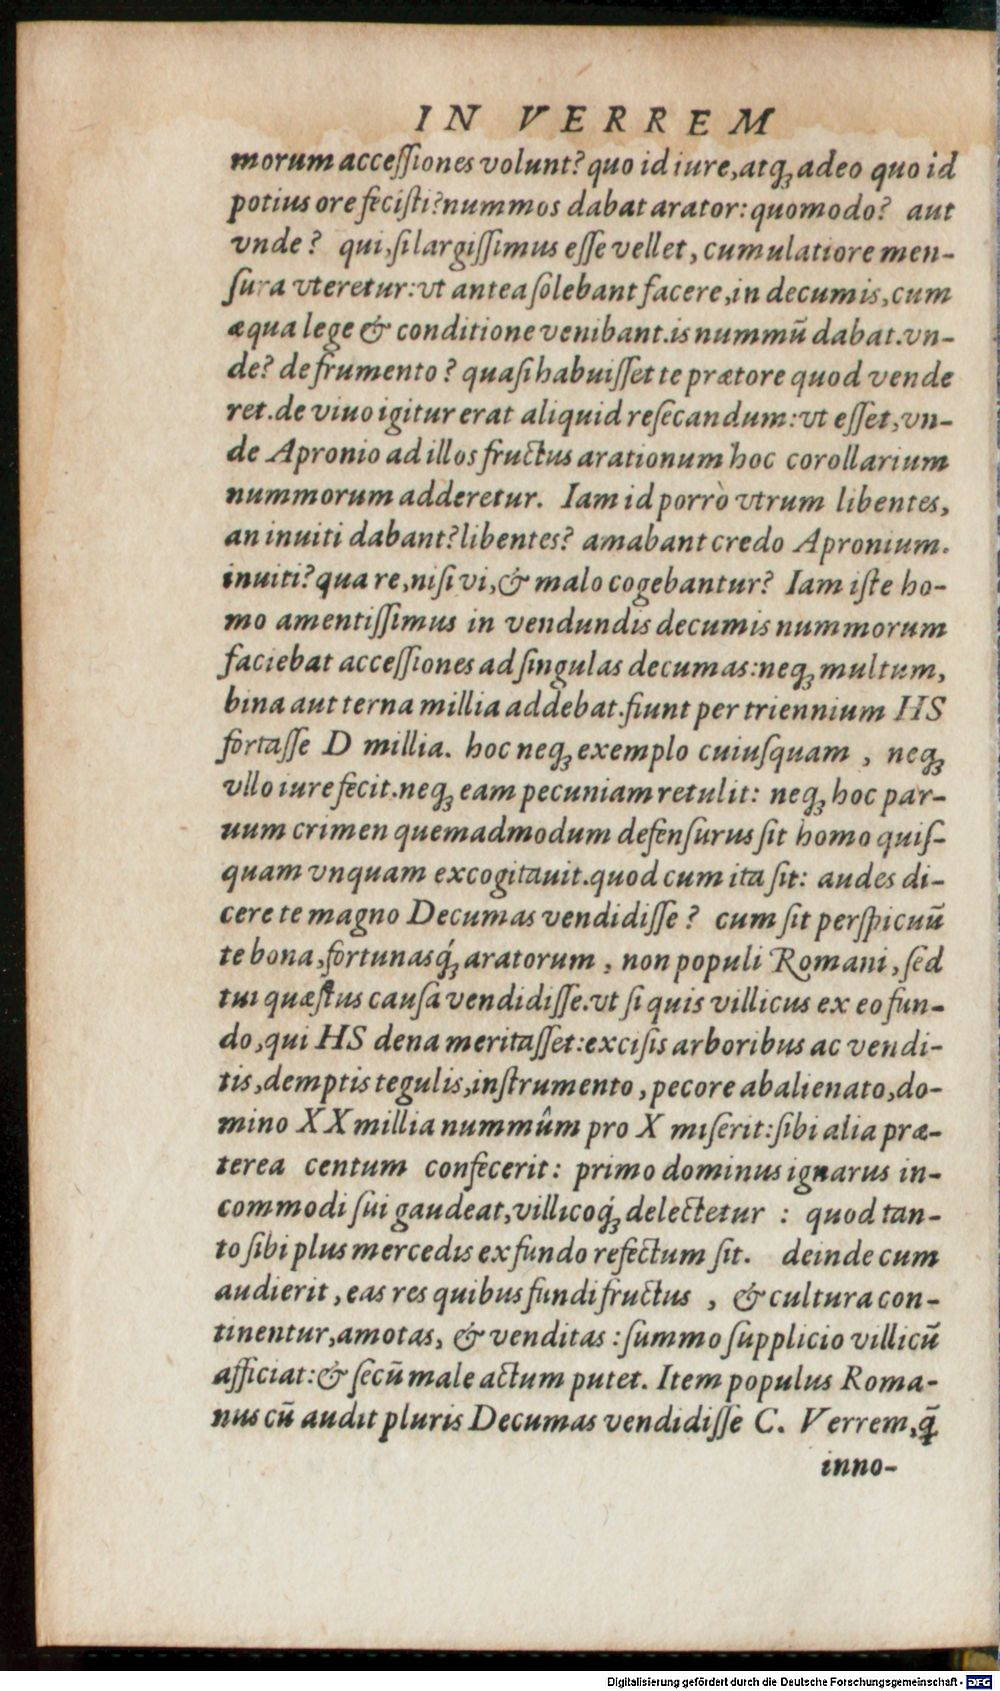 IN VERREM
morum accessiones volunt? quo id iure, atq́ꝫ adeo quo id
potius ore fecisti? nummos dabat arator: quomodo? aut
vnde? qui, si largissimus esse vellet, cumulatiore men-
sura vteretur: vt antea solebant facere, in decumis, cum
æqua lege & conditione venibant. is nummū dabat. vn-
de? de frumento? quasi habuisset te prætore quod vende
ret. de viuo igitur erat aliquid resecandum: vt esset, vn-
de Apronio ad illos fructus arationum hoc corollarium
nummorum adderetur. Iam id porrò vtrum libentes,
an inuiti dabant? libentes? amabant credo Apronium.
inuiti? qua re, nisi vi, & malo cogebantur? Iam iste ho-
mo amentissimus in vendundis decumis nummorum
faciebat accessiones ad singulas decumas: neqꝫ multum,
bina aut terna millia addebat. fiunt per triennium HS
fortasse D millia. hoc neqꝫ exemplo cuiusquam, neqꝫ
vllo iure fecit. neqꝫ eam pecuniam retulit: neqꝫ hoc par-
uum crimen quemadmodum defensurus sit homo quis-
quam vnquam excogitauit. quod cum ita sit: audes di-
cere te magno Decumas vendidisse? cum sit perspicuū
te bona, fortunasq́ꝫ aratorum, non populi Romani, sed
tui quæstus causa vendidisse. vt si quis villicus ex eo fun-
do, qui HS dena meritasset: excisis arboribus ac vendi-
tis, demptis tegulis, instrumento, pecore abalienato, do-
mino XX millia nummûm pro X miserit: sibi alia præ-
terea centum confecerit: primo dominus ignarus in-
commodi sui gaudeat, villicoq́ꝫ delectetur: quod tan-
to sibi plus mercedis ex fundo refectum sit. deinde cum
audierit, eas res quibus fundi fructus, & cultura con-
tinentur, amotas, & venditas: summo supplicio villicū
afficiat: & secū male actum putet. Item populus Roma-
nus cū audit pluris Decumas vendidisse C. Verrem, q̄ꝫ
inno-
Digitalisierung gefördert durch die Deutsche Forschungsgemeinschaft - DFG